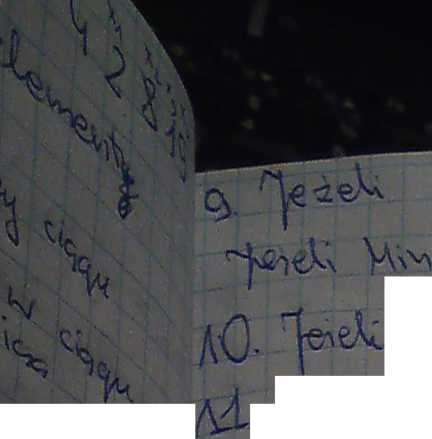 4 2 8
elementy
ciągu
w ciągu
9. Jeżeli
Jeżeli Min
10. Jeżeli
11